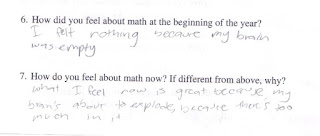 6. How did you feel about math at the beginning of the year?
I felt nothing because my brain
was empty
7. How do you feel about math now? If different from above, why?
What I feel now is great because my
brain's about to explode, because there's soo
much in it